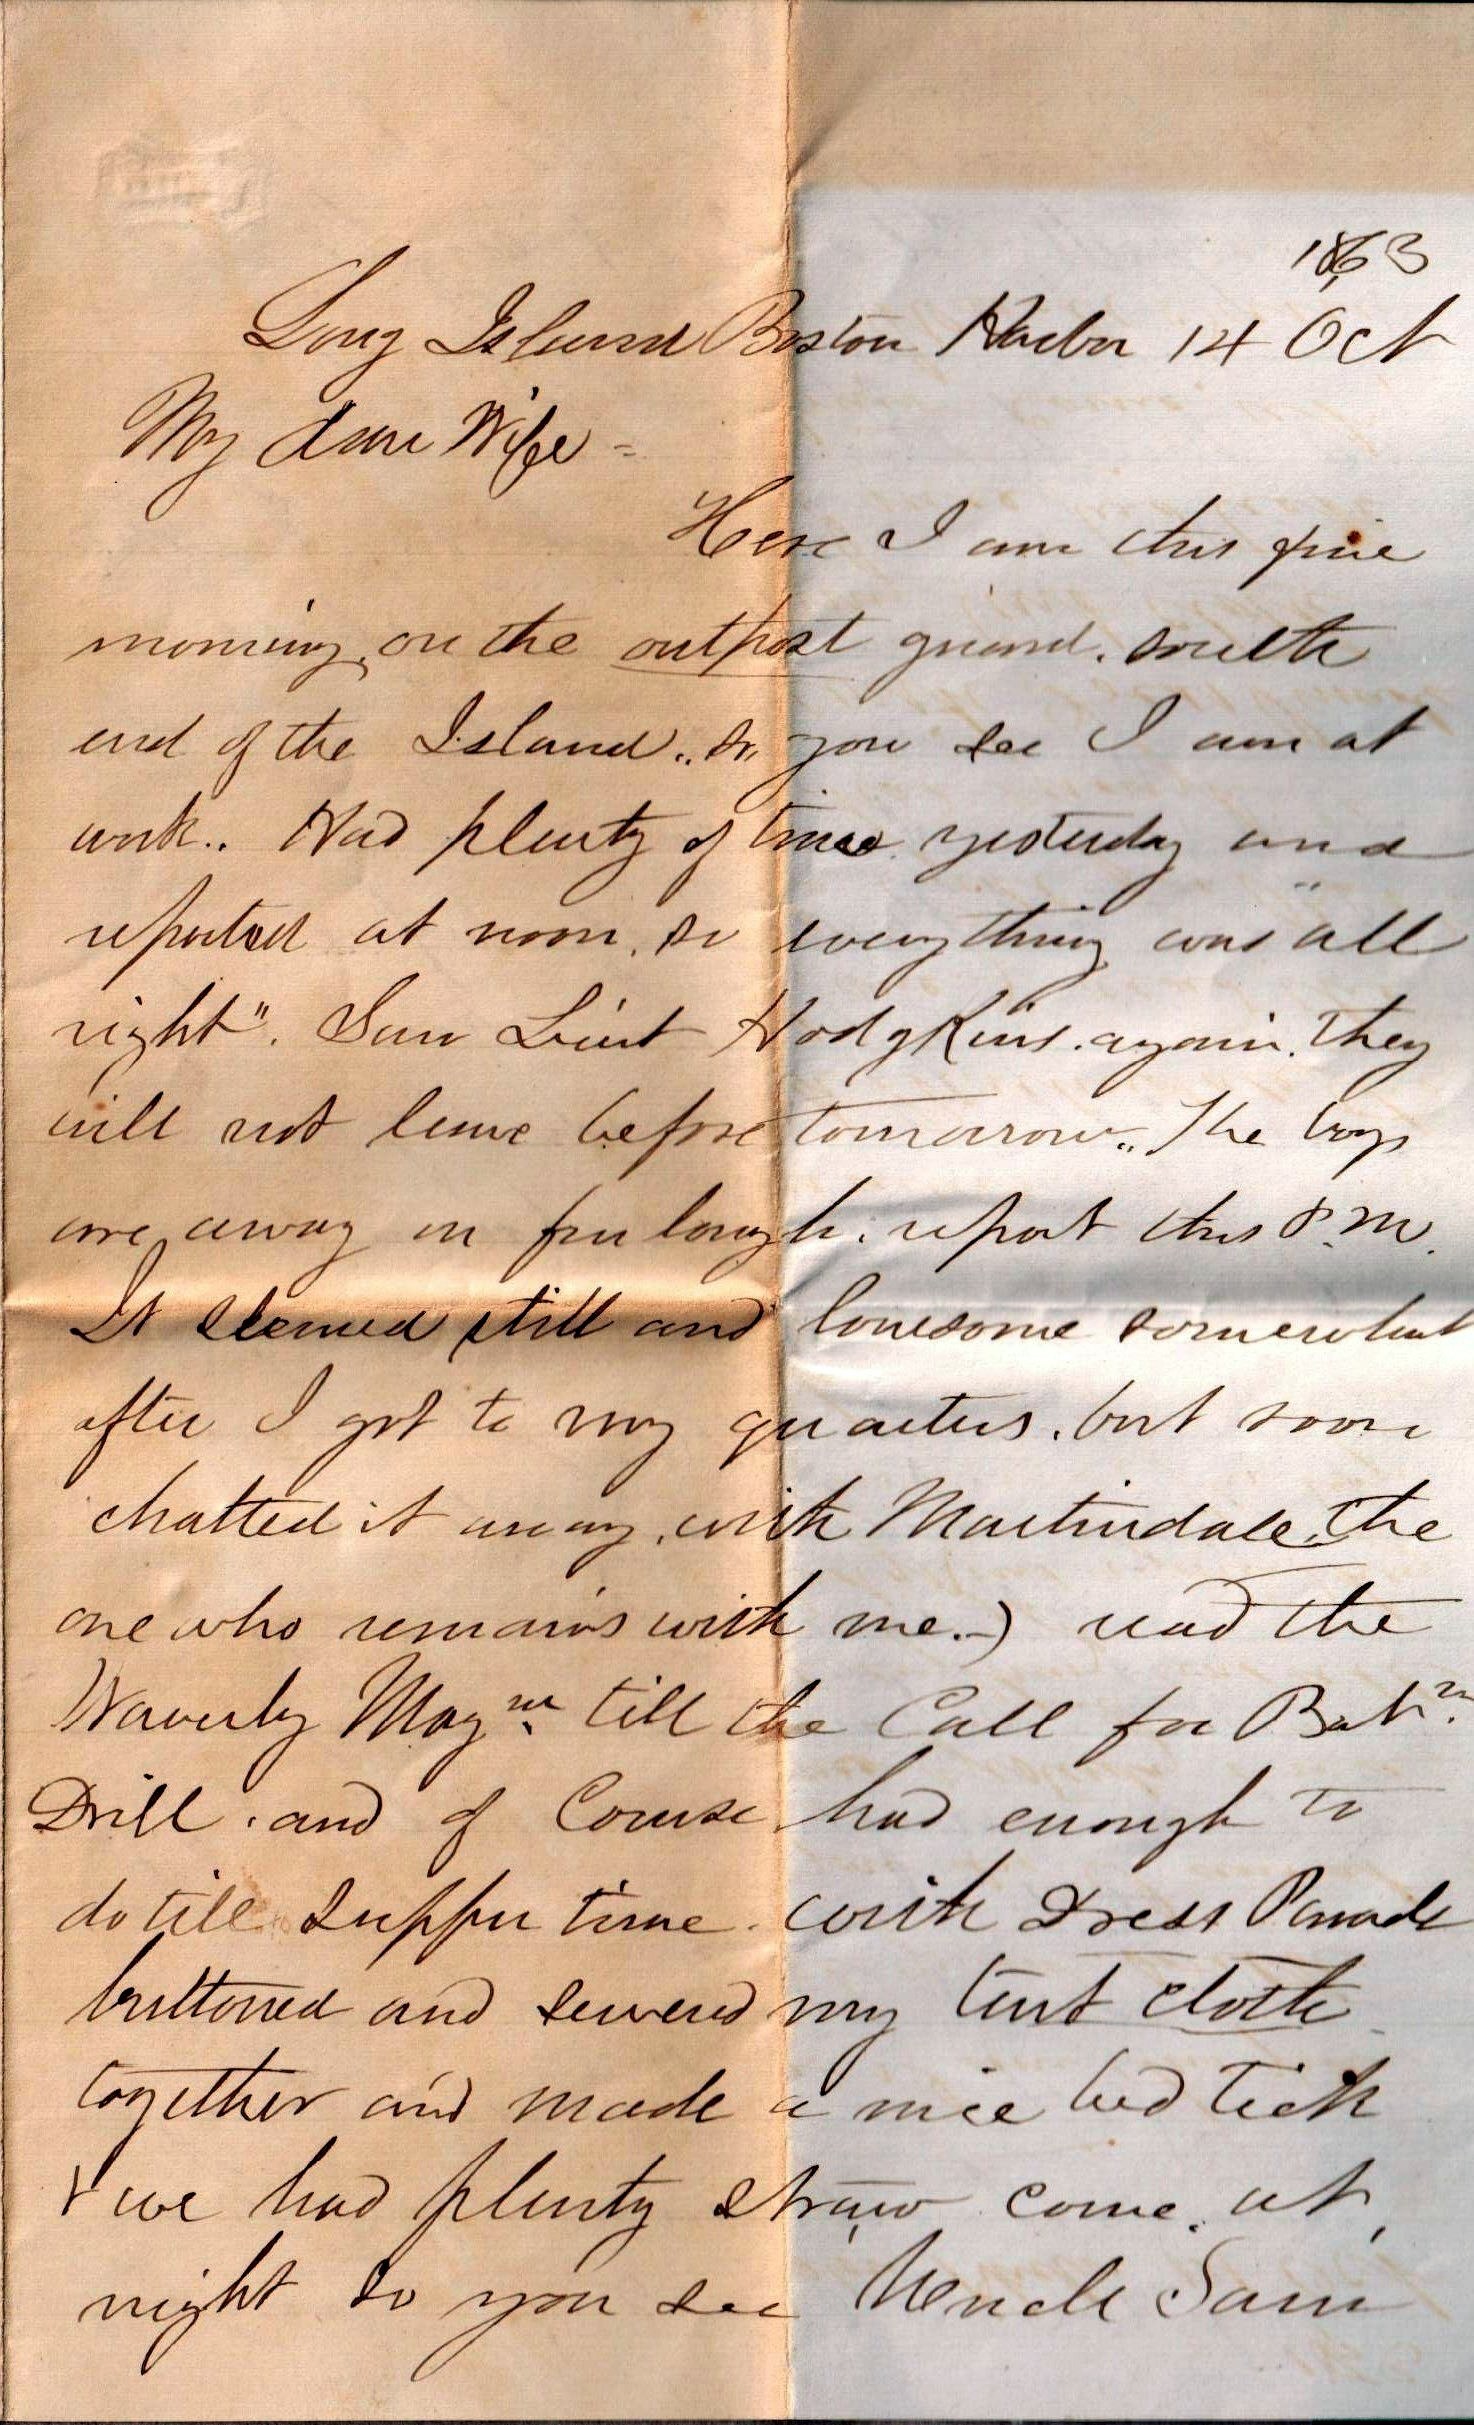 1863
Long Island Boston Harbor 14 Oct
My dear Wife -
Here I am this fine
morning, on the outpost guard. south
end of the Island.. so you see I am at
work.. Had plenty of time yesterday and
reported at noon. so everything was "all
right". Saw Lieut Hodgkins. again. They
will not leave before tomorrow.. The boys
are away on furlough. report this P.M.
It seemed still and lonesome somewhat
after I got to my quarters. but soon
chatted it away. with Martindale. the
one who remains with me.-) read the
Waverly Magne. till the Call for Batn.
Drill. and of Course had enough to
do till Supper time. with Dress Parade
buttoned and sewed my tent cloth
together and made a nice bed tick
& we had plenty straw come. at,
night so you see Uncle Sam